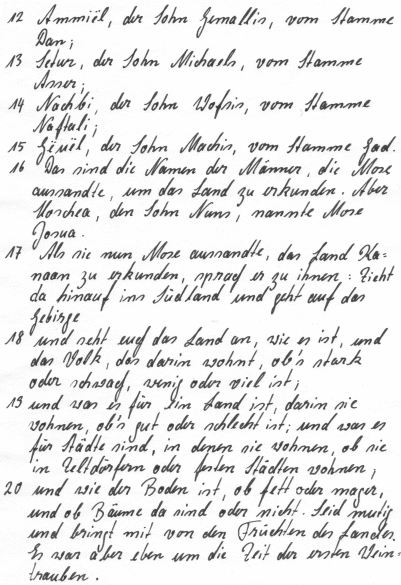 12 Ammiël, der Sohn Gemallis, vom Stamme
Dan;
13 Setur, der Sohn Michaels, vom Stamme
Asser;
14 Nachbi, der Sohn Wofsis, vom Stamme
Naftali;
15 Gëuël, der Sohn Machis, vom Stamme Gad.
16 Das sind die Namen der Männer, die Mose
aussandte, um das Land zu erkunden. Aber
Hoschea, den Sohn Nuns, nannte Mose
Josua.
17 Als sie nun Mose aussandte, das Land Ka=
naan zu erkunden, sprach er zu ihnen: Zieht
da hinauf ins Südland und geht auf das
Gebirge
18 und seht euch das Land an, wie es ist, und
das Volk, das darin wohnt, ob's stark
oder schwach, wenig oder viel ist;
19 und was es für ein Land ist, darin sie
wohnen, ob's gut oder schlecht ist; und was es
für Städte sind, in denen sie wohnen, ob sie
in Zeltdörfern oder festen Städten wohnen;
20 und wie der Boden ist, ob fett oder mager,
und ob Bäume da sind oder nicht. Seid mutig
und bringt mit von den Früchten des Landes.
Es war aber eben um die Zeit der ersten Wein=
trauben.